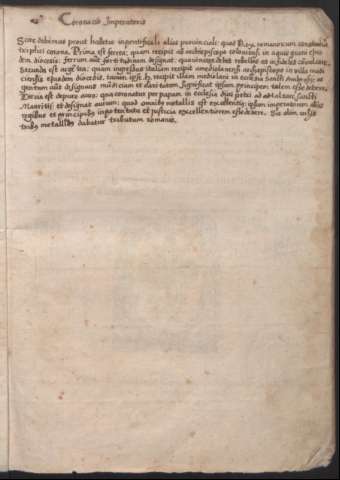 Coronacio Imperatoris
Scire debemus prout habetur in pontificali alias provinciali: quod Rex romanorum coronatur
triplici corona. Prima est ferrea: quam recipit ab archiepiscopo coloniensi in aquis grani
den. diocesis: ferrum autem fortitudinem designat: qua vincere debet rebelles et infideles
Secunda est argentea: quam ingressus italiam recipit a mediolanensi archiepiscopo in villa modi
ciensis eiusdem diocesis. recipit illam mediolani in ecclesia Sancti Ambrosii: ar
gentum autem designans mundiciam et claritatem. Significat ipsum principem talem esse debere.
Tercia est de puro auro: qua coronatur per papam in ecclesia divi petri ad altare sancti
Mauritii: et designat aurum: quod omnibus metallis est excellentius: ipsum imperatorem aliis
regibus et principibus in potentatu et justicia excellentiorem esse debere. Sic olim ex his
tribus metallis dabatur tributum romanis.